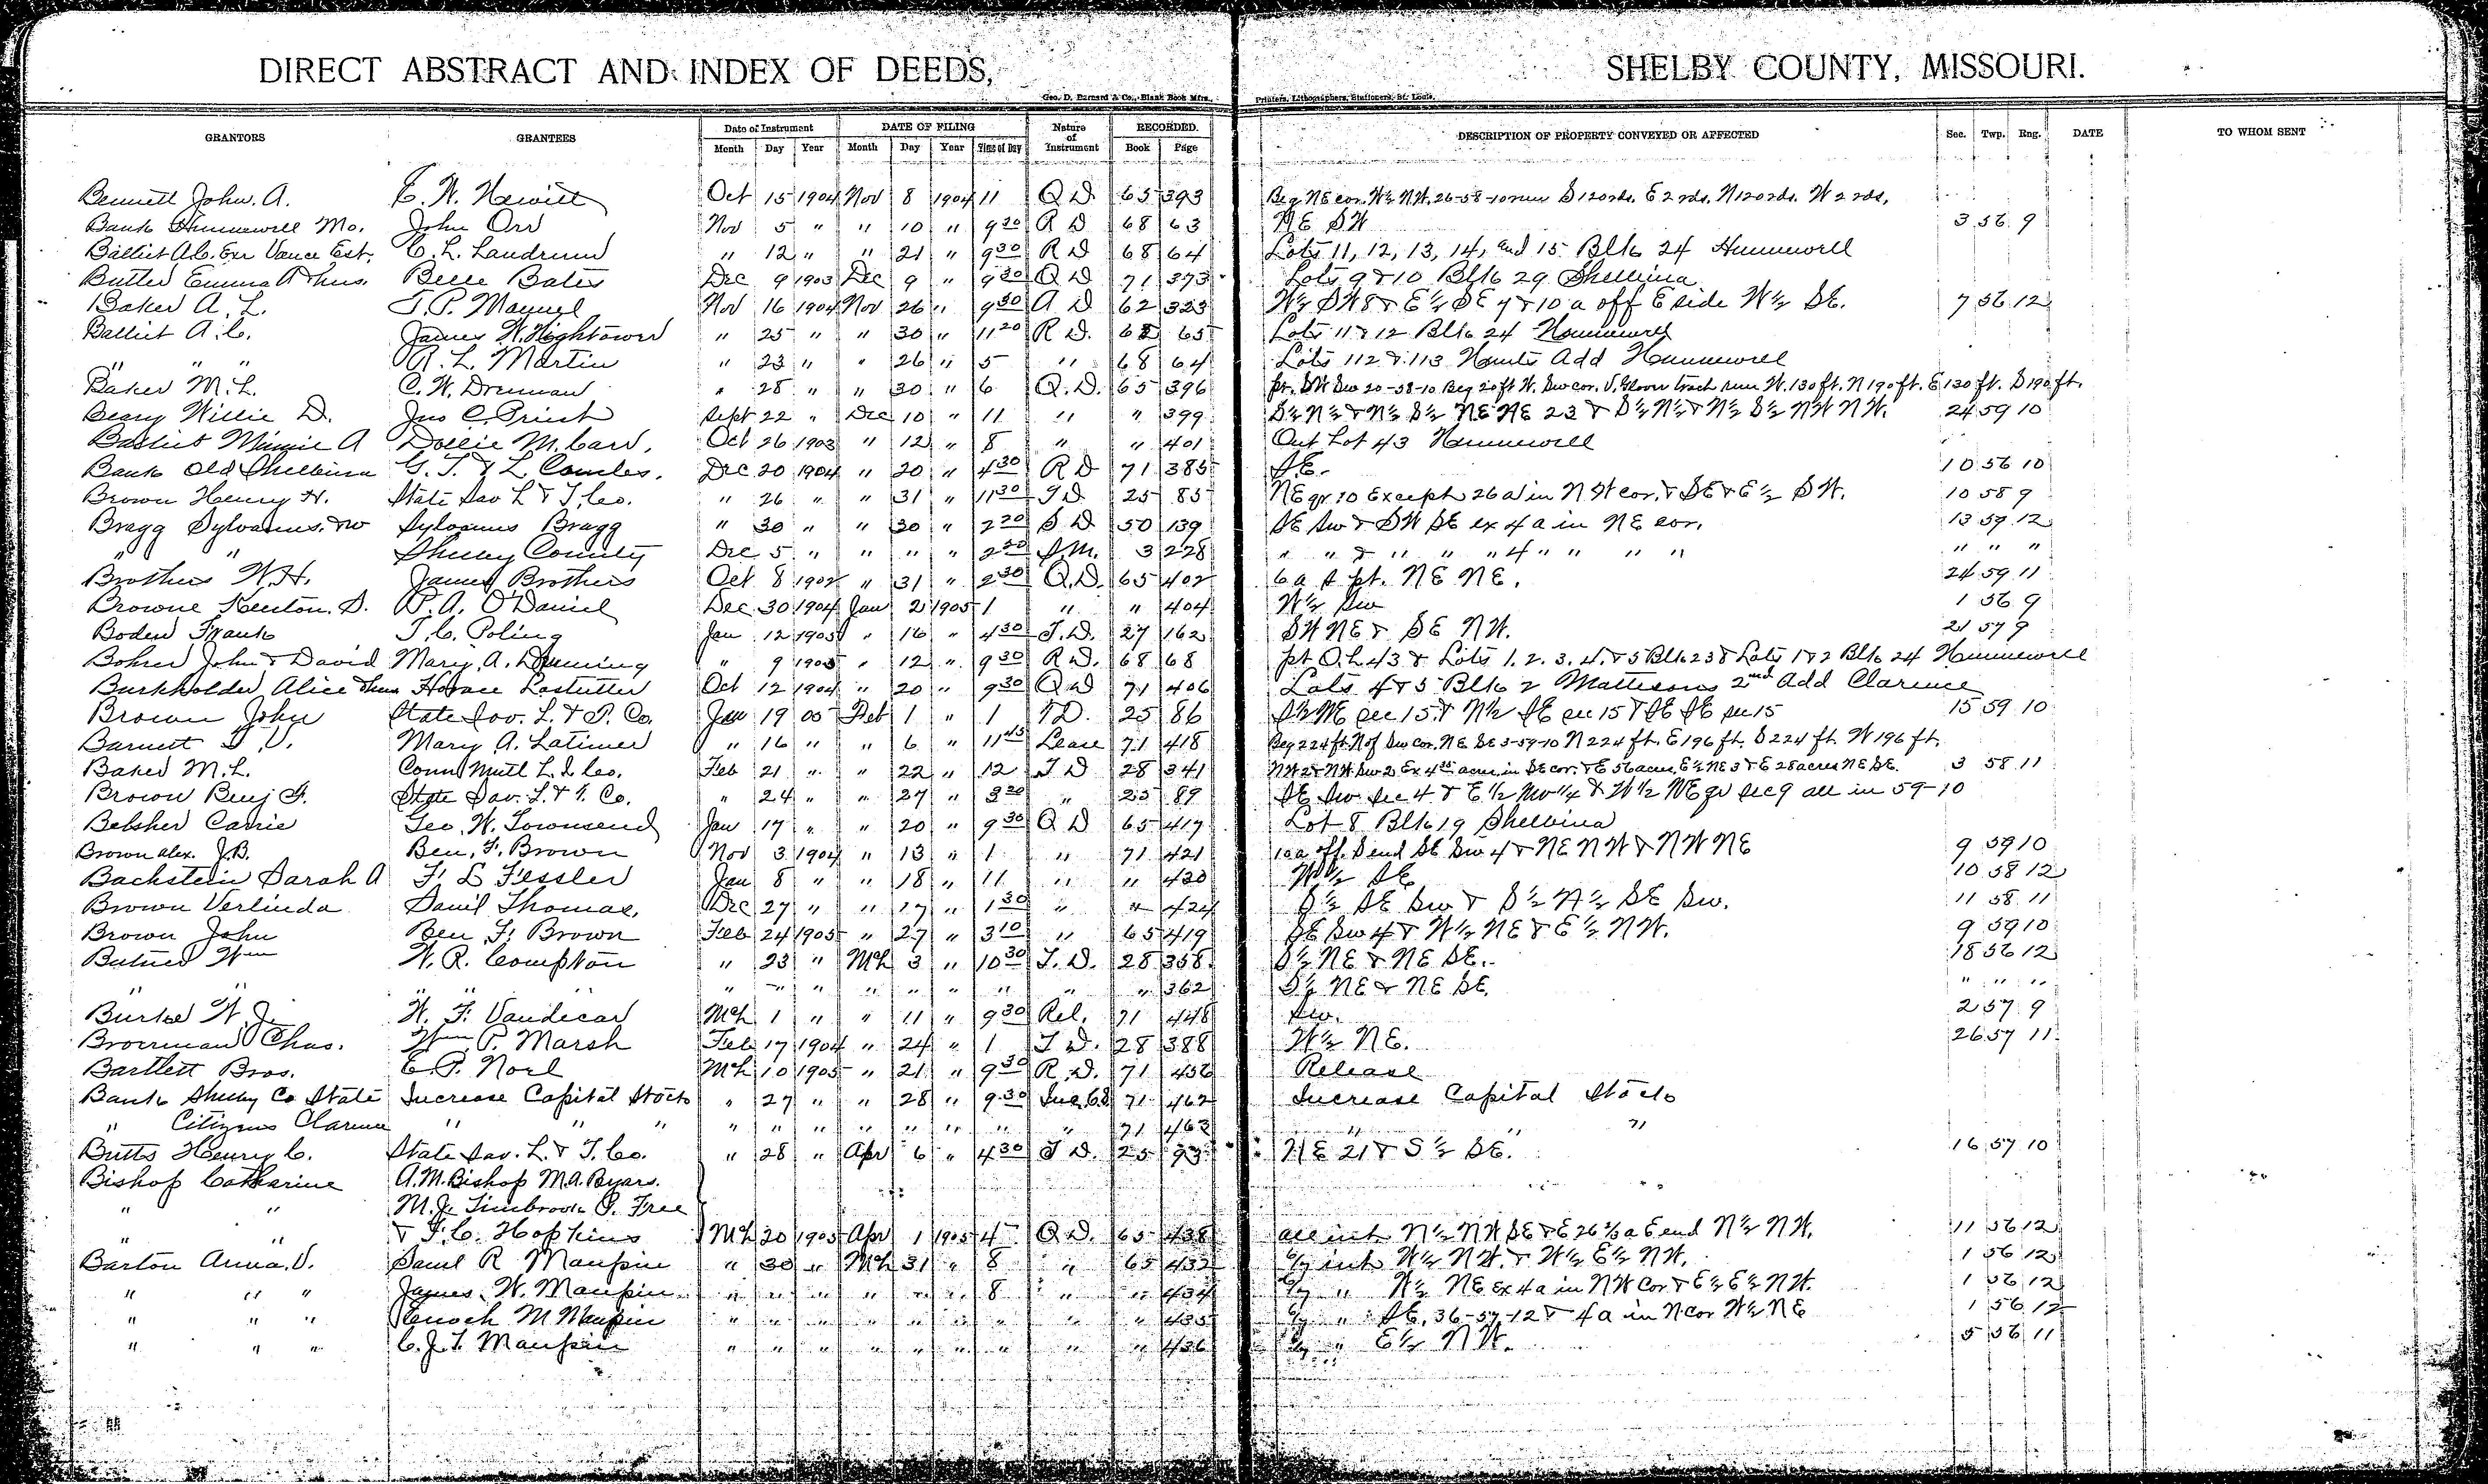 DIRECT ABSTRACT AND INDEX OF DEEDS, SHELBY COUNTY, MISSOURI.
Geo. D. Barnard & Co., Blank Book Mfrs., Printers, Lithographers, Stationers, St. Louis.
GRANTORS GRANTEES Date of Instrument DATE OF FILING Nature of Instrument RECORDED. DESCRIPTION OF PROPERTY CONVEYED OR AFFECTED Sec. Twp. Rng. DATE TO WHOM SENT
Month Day Year Month Day Year Time of Day Book Page
Bennett John. A. E. W. Hewitt Oct 15 1904 Nov 8 1904 11 Q D. 65 393 Beg NE cor. W½ NW. 26-58-10 run S 120 rds. E 2 rds. N 120 rds. W 2 rds.
Bank Hunnewell Mo. John Orr Nov 5 " " 10 " 9 30 R D 68 63 NE SW 3 56 9
Balliet A.C. Exr Vance Est. C. L. Landrum " 12 " " 21 " 9 30 R D 68 64 Lots 11, 12, 13, 14, and 15 Blk 24 Hunnewell
Butler Emma & hus. Belle Bates Dec 9 1903 Dec 9 " 9 30 Q D 71 373 Lots 9 & 10 Blk 29 Shelbina
Baker A. L. T. P. Manuel Nov 16 1904 Nov 26 " 9 30 A D 62 323 W½ SW 8 & E½ SE 7 & 10 a off E side W½ SE. 7 56 12
Balliet A. C. James W. Hightower " 25 " " 30 " 11 20 R D. 68 65 Lots 11 & 12 Blk 24 Hunnewell
" " " R. L. Martin " 23 " " 26 " 5 " 68 64 Lots 112 & 113 Hunts Add Hunnewell
Baker M. L. C. W. Drennan " 28 " " 30 " 6 Q. D. 65 396 pt. SW Sw 20-58-10 Beg 20 ft W. Sw cor. V. Glover tract run W. 130 ft. N 190 ft. E 130 ft. S 190 ft.
Willie D. Jno C. Sept 22 " Dec 10 " 11 " " 399 S½ N½ & N½ S½ NE NE 23 & S½ N½ & N½ S½ NW NW. 24 59 10
Minnie A Dollie M. Carr. Oct 26 1903 " 12 " 8 " " 401 Out Lot 43 Hunnewell
Bank Old Shelbina G. T. & L. Combes. Dec 20 1904 " 20 " 4 30 R D 71 385 SE. 10 56 10
Brown Henry H. State Sav L & T. Co. " 26 " " 31 " 11 30 T D 25 85 NE qr. 10 Except 26 a in NW cor. & SE & E½ SW. 10 58 9
Bragg Sylvanus. & w Sylvanus Bragg " 30 " " 30 " 2 20 S D 50 139 SE Sw & SW SE ex 4 a in NE cor. 13 59 12
" " Shelby County Dec 5 " " " " 2 30 S.M. 3 228 " " & " " " 4 " " " " " " "
Brothers W. H. James Brothers Oct 8 1902 " 31 " 2 30 Q. D. 65 402 6 a pt. NE NE. 24 59 11
Browne Kenton. S. P. A. O'Daniel Dec 30 1904 Jan 2 1905 1 " " 404 W½ Sw 1 56 9
Boden Frank T. C. Poling Jan 12 1905 " 16 " 4 30 T. D. 27 162 SW NE & SE NW. 21 57 9
Bohrer John & David Mary. A. " 9 1905 " 12 " 9 30 R D. 68 68 pt O.L 43 & Lots 1. 2. 3. 4. & 5 Blk 23 & Lots 1 & 2 Blk 24 Hunnewell
Burkholder Alice & hus Horace Lostutter Oct 12 1904 " 20 " 9 30 Q D 71 406 Lots 4 & 5 Blk 2 Mattisons 2nd Add Clarence
Brown John State Sav. L. & T. Co. Jan 19 05 Feb 1 " 1 T D. 25 86 S½ NE sec 15. & N½ SE sec 15 & SE SE sec 15 15 59 10
Barnett Mary A. Latimer " 16 " " 6 " 11 45 Lease 71 418 Beg 224 ft. N of Sw cor. NE SE 3-59-10 N 224 ft. E 196 ft. S 224 ft. W 196 ft.
Baker M. L. Conn Mutl L. I. Co. Feb 21 " " 22 " 12 T D 28 341 NW 2 & NW Sw 2 Ex 4 acres in SE cor. & E 56 acres E½ NE 3 & E 28 acres NE SE. 3 58 11
Brown Benj F. State Sav. L. & T. Co. " 24 " " 27 " 3 20 " 25 89 SE Sw Sec 4 & E 1/2 Nw 1/4 & W 1/2 NE qr sec 9 all in 59-10
Belsher Carrie Geo. W. Townsend Jan 17 " " 20 " 9 30 Q D 65 417 Lot 8 Blk 19 Shelbina
Brown Alex. J.B. Ben. F. Brown Nov 3 1904 " 13 " 1 " 71 421 10 a off S end SE Sw 4 & NE NW & NW NE 9 59 10
Bachstein Sarah A F. L Fessler Jan 8 " " 18 " 11 " " 420 W½ SE 10 58 12
Brown Verlinda Saml Thomas. Dec 27 " " 17 " 1 30 " " 424 S½ SE Sw & S½ N½ SE Sw. 11 58 11
Brown John Ben F. Brown Feb 24 1905 " 27 " 3 10 " 65 419 SE Sw 4 & W½ NE & E½ NW. 9 59 10
Wm W. R. Compton " 23 " Mch 3 " 10 30 T. D. 28 358 S½ NE & NE SE. 18 56 12
" " " " " " " " " " " 362 S½ NE & NE SE. " " "
Burke W. J. W. F. Vandecar Mch 1 " " 11 " 9 30 Rel. 71 448 Sw. 2 57 9
Chas. Wm P. Marsh Feb 17 1904 " 24 " 1 T D. 28 388 W½ NE. 26 57 11
Bartlett Bros. E. P. Noel Mch 10 1905 " 21 " 9 30 R. D. 71 456 Release
Bank Shelby Co State Increase Capital Stock " 27 " " 28 " 9 30 71 462 Increase Capital Stock
" Citizens Clarence " " " " " " " " " " " 71 463 " " "
Butts Henry C. State Sav. L. & T. Co. " 28 " Apr 6 " 4 30 T D. 25 93 NE 21 & S½ SE. 16 57 10
Bishop Catharine A. M. Bishop M. A. Byars.
" " M. J. Timbrook P. Free
" " & F. C. Hopkins Mch 20 1905 Apr 1 1905 4 Q D. 65 438 all int N½ NW SE & E 26 ⅔ a E end N½ NW. 11 56 12
Barton Anna. V. Saml R Maupin " 30 " Mch 31 " 8 " 65 432 6/7 int W½ NW. & W½ E½ NW. 1 56 12
" " " James. W. Maupin " " " " " " 8 " " 434 6/7 " W½ NE ex 4 a in NW cor & E½ E½ NW. 1 56 12
" " " Enoch M Maupin " " " " " " " " " 435 6/7 " SE. 36-57-12 & 4 a in N cor W½ NE 1 56 12
" " " C. J. T. Maupin " " " " " " " " " 436 6/7 " E½ NW. 5 56 11